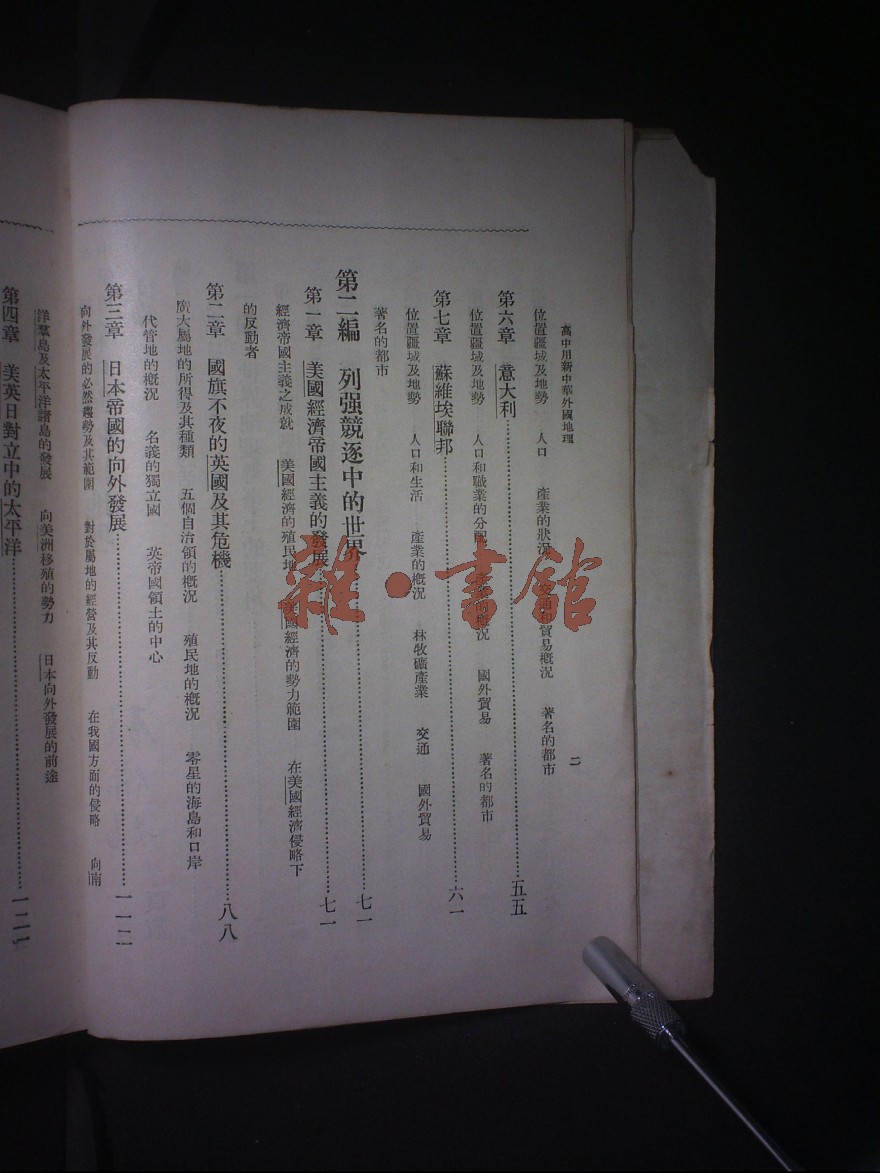 高中用新中華外國地理　二
位置疆域及地勢　人口　產業的狀況　交通和貿易概況　著名的都市
第六章　意大利……五五
位置疆域及地勢　人口和職業的分配　產業的概況　國外貿易　著名的都市
第七章　蘇維埃聯邦……六一
位置疆域及地勢　人口和生活　產業的概況　林牧礦產業　交通　國外貿易
著名的都市
第二編　列强競逐中的世界……七一
第一章　美國經濟帝國主義的發展……七一
經濟帝國主義之成就　美國經濟的殖民地　美國經濟的勢力範圍　在美國經濟侵略下
的反動者
第二章　國旗不夜的英國及其危機……八八
廣大屬地的所得及其種類　五個自治領的概況　殖民地的概況　零星的海島和口岸
代管地的概況　名義的獨立國　英帝國領土的中心
第三章　日本帝國的向外發展……一一二
向外發展的必然趨勢及其範圍　對於屬地的經營及其反動　在我國方面的侵略　向南
洋羣島及太平洋諸島的發展　向美洲移殖的勢力　日本向外發展的前途
第四章　美英日對立中的太平洋……一二
雜·書館